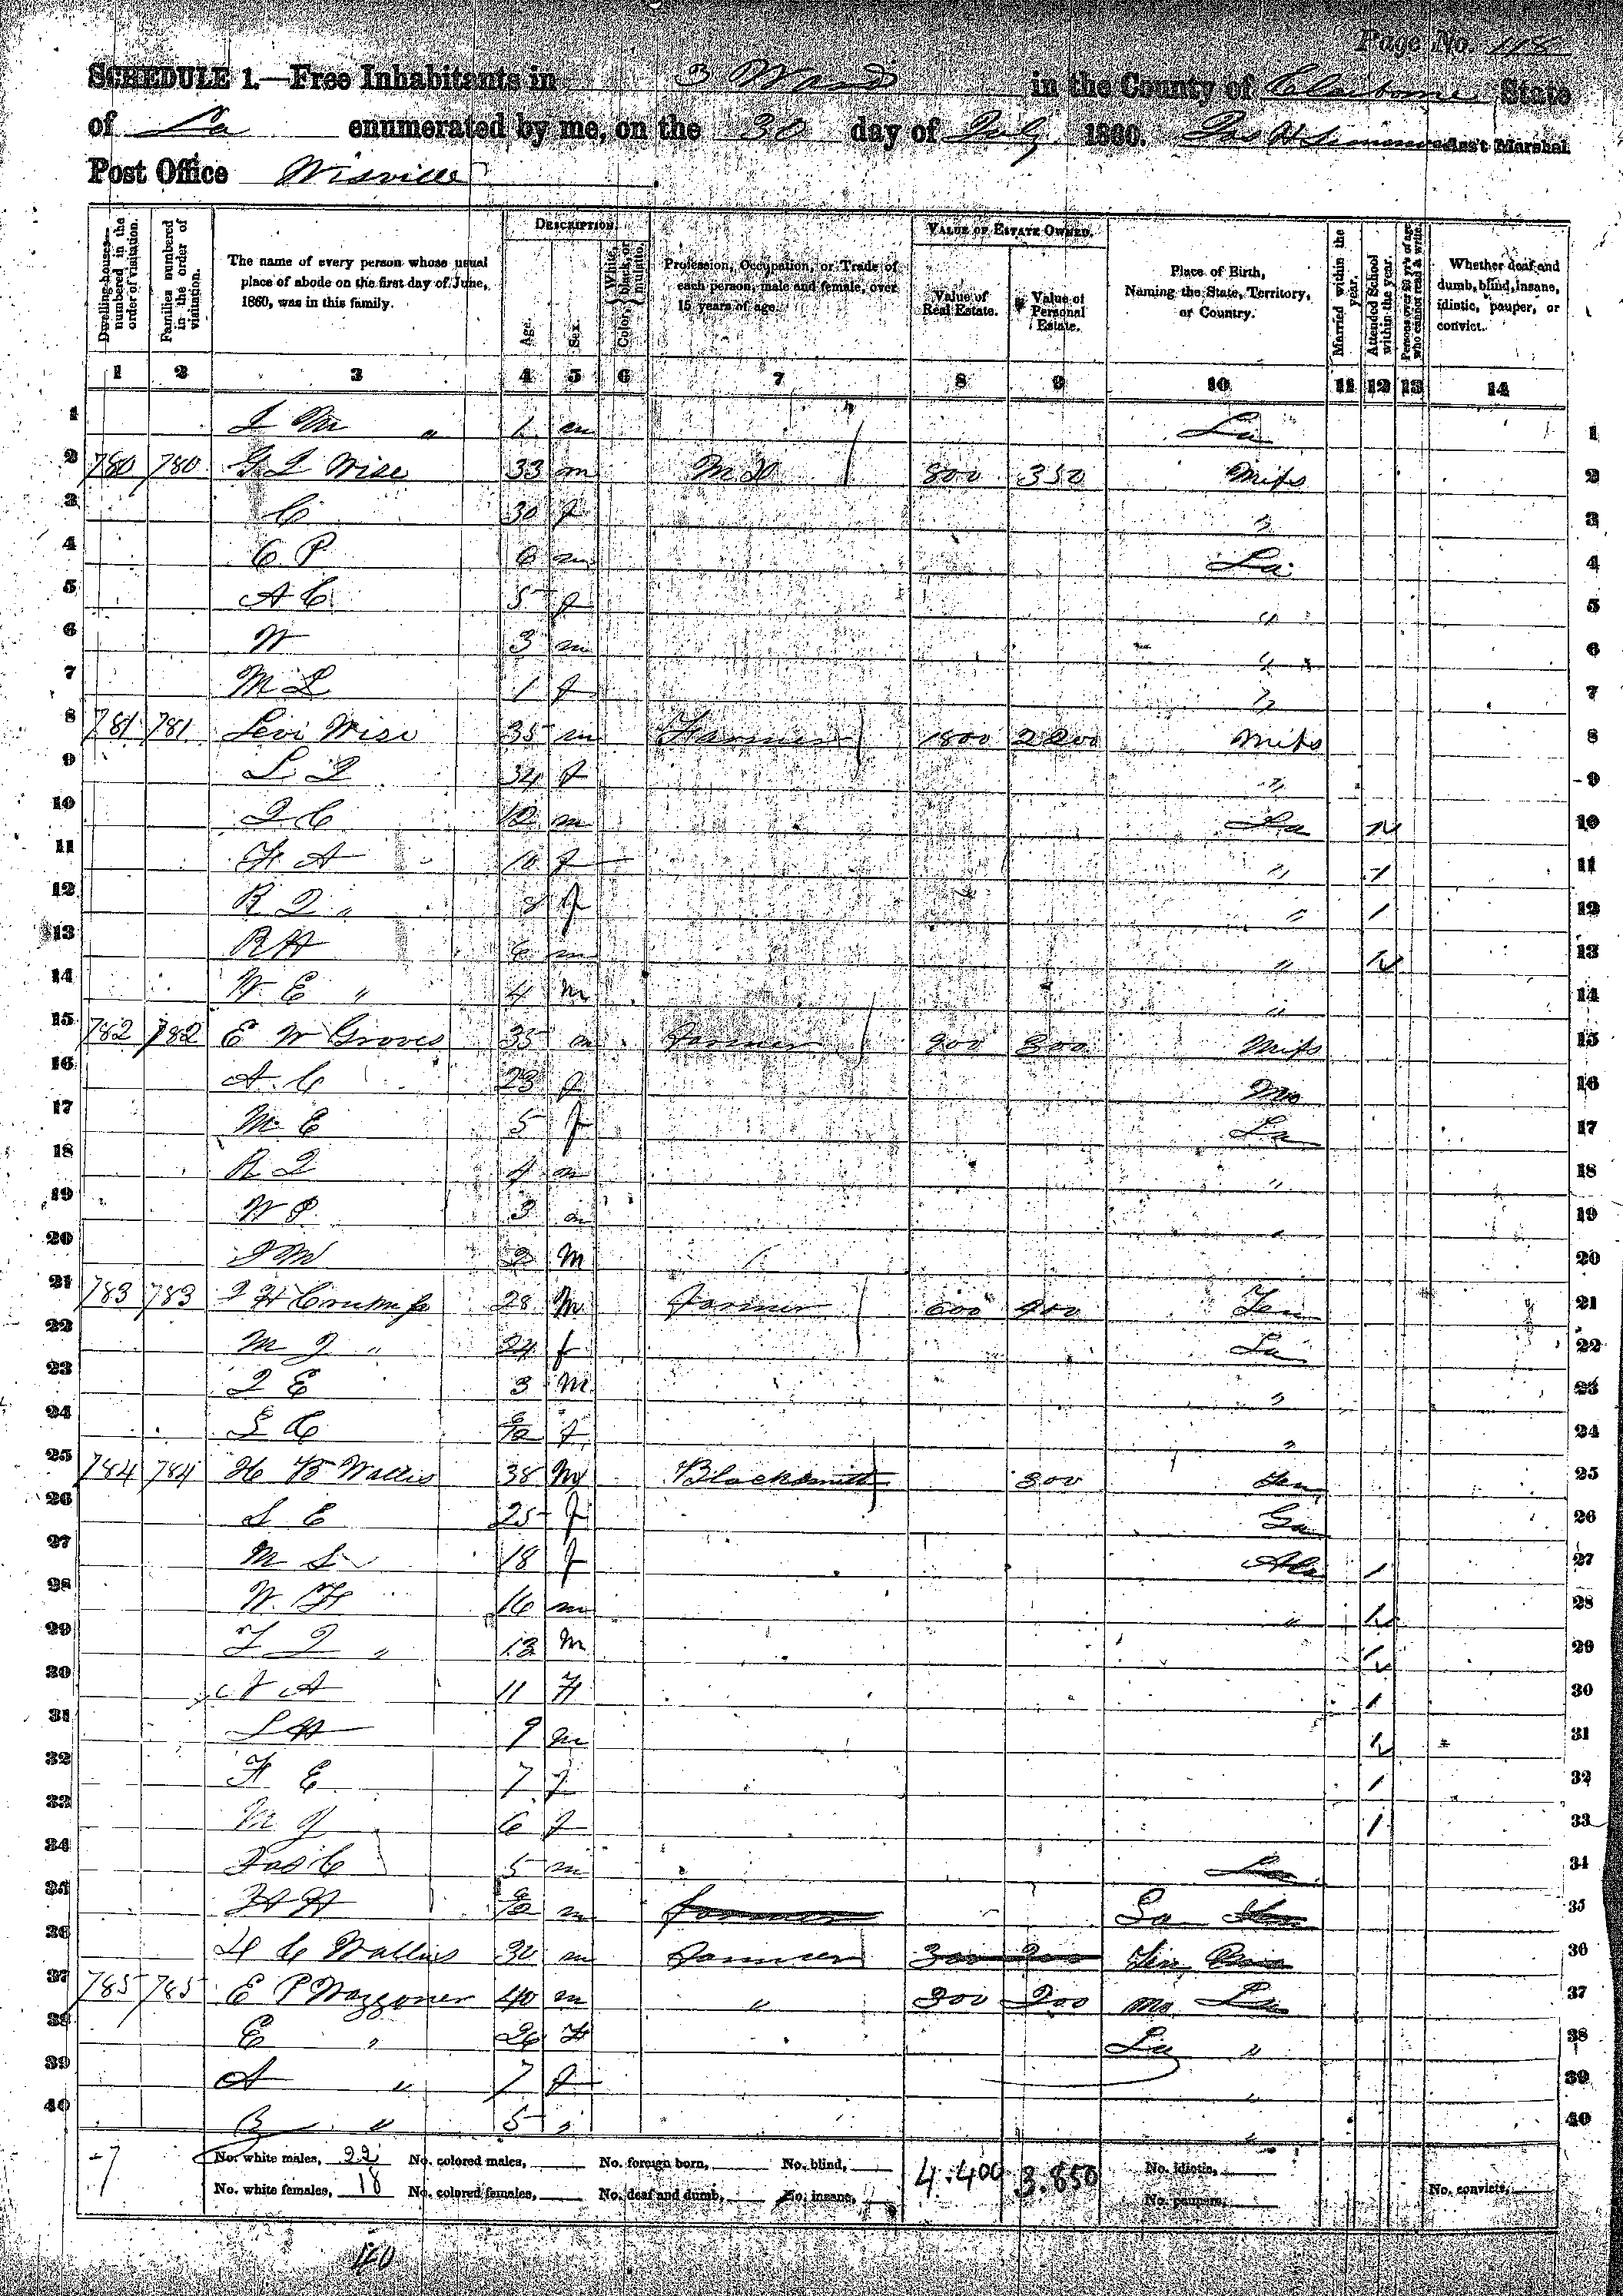 Page No. 118
SCHEDULE 1.—Free Inhabitants in 3 Ward in the County of Claiborne State
of La enumerated by me, on the 30 day of July 1860. Jas H Simmons Ass't Marshal
Post Office
Dwelling-houses—numbered in the order of visitation.
Families numbered in the order of visitation.
The name of every person whose usual place of abode on the first day of June, 1860, was in this family.
DESCRIPTION.
Age.
Sex.
Color, { White, black, or mulatto.
Profession, Occupation, or Trade of each person, male and female, over 15 years of age.
VALUE OF ESTATE OWNED.
Value of Real Estate.
Value of Personal Estate.
Place of Birth, Naming the State, Territory, or Country.
Married within the year.
Attended School within the year.
Persons over 20 yr's of age who cannot read & write.
Whether deaf and dumb, blind, insane, idiotic, pauper, or convict.
1 2 3 4 5 6 7 8 9 10 11 12 13 14
1 J M " 1 m La 1
2 780 780 G J Wise 33 m M D 800 350 Miss 2
3 C 30 f " 3
4 C P 6 m La 4
5 A C 5 f " 5
6 W 3 m " 6
7 M L 1 f " 7
8 781 781 Levi Wise 35 m Farmer 1800 2200 Miss 8
9 L J 34 f " 9
10 J C 12 m La 1 10
11 F A 10 f " 1 11
12 R J " 8 f " 1 12
13 R H 6 m " 1 13
14 W E " 4 m " 14
15 782 782 E W Groves 35 m Farmer 900 300 Miss 15
16 A. C 23 f 16
17 M E 5 f La 17
18 R J 4 m " 18
19 W P 3 m " 19
20 J M 2 M 20
21 783 783 J H Crump 28 M Farmer 600 400 Ten 21
22 M J " 24 f La 22
23 J E 3 M " 23
24 S C 6/12 f " 24
25 784 784 H B Wallis 38 M Blacksmith 300 Ten 25
26 S E 25 f Ga 26
27 M S 18 f Ala 1 27
28 W. F 16 m " 1 28
29 J " 13 M 1 29
30 A 11 F 1 30
31 L H 9 m 1 31
32 F E 7 f 1 32
33 M J 6 f 1 33
34 Jas C 5 m La 34
35 H H m Farmer La 35
36 H C Wallis 30 m Farmer 300 200 Ten 36
37 785 785 E P Waggoner 40 m " 300 200 Mo La 37
38 E " 26 F La " 38
39 A " 7 f " 39
40 B " 5 " " 40
-7 No. white males, 22 No. colored males, No. foreign born, No. blind, 4.400 3.850 No. idiotic,
No. white females, 18 No. colored females, No. deaf and dumb, No. insane, No. paupers, No. convicts,
40